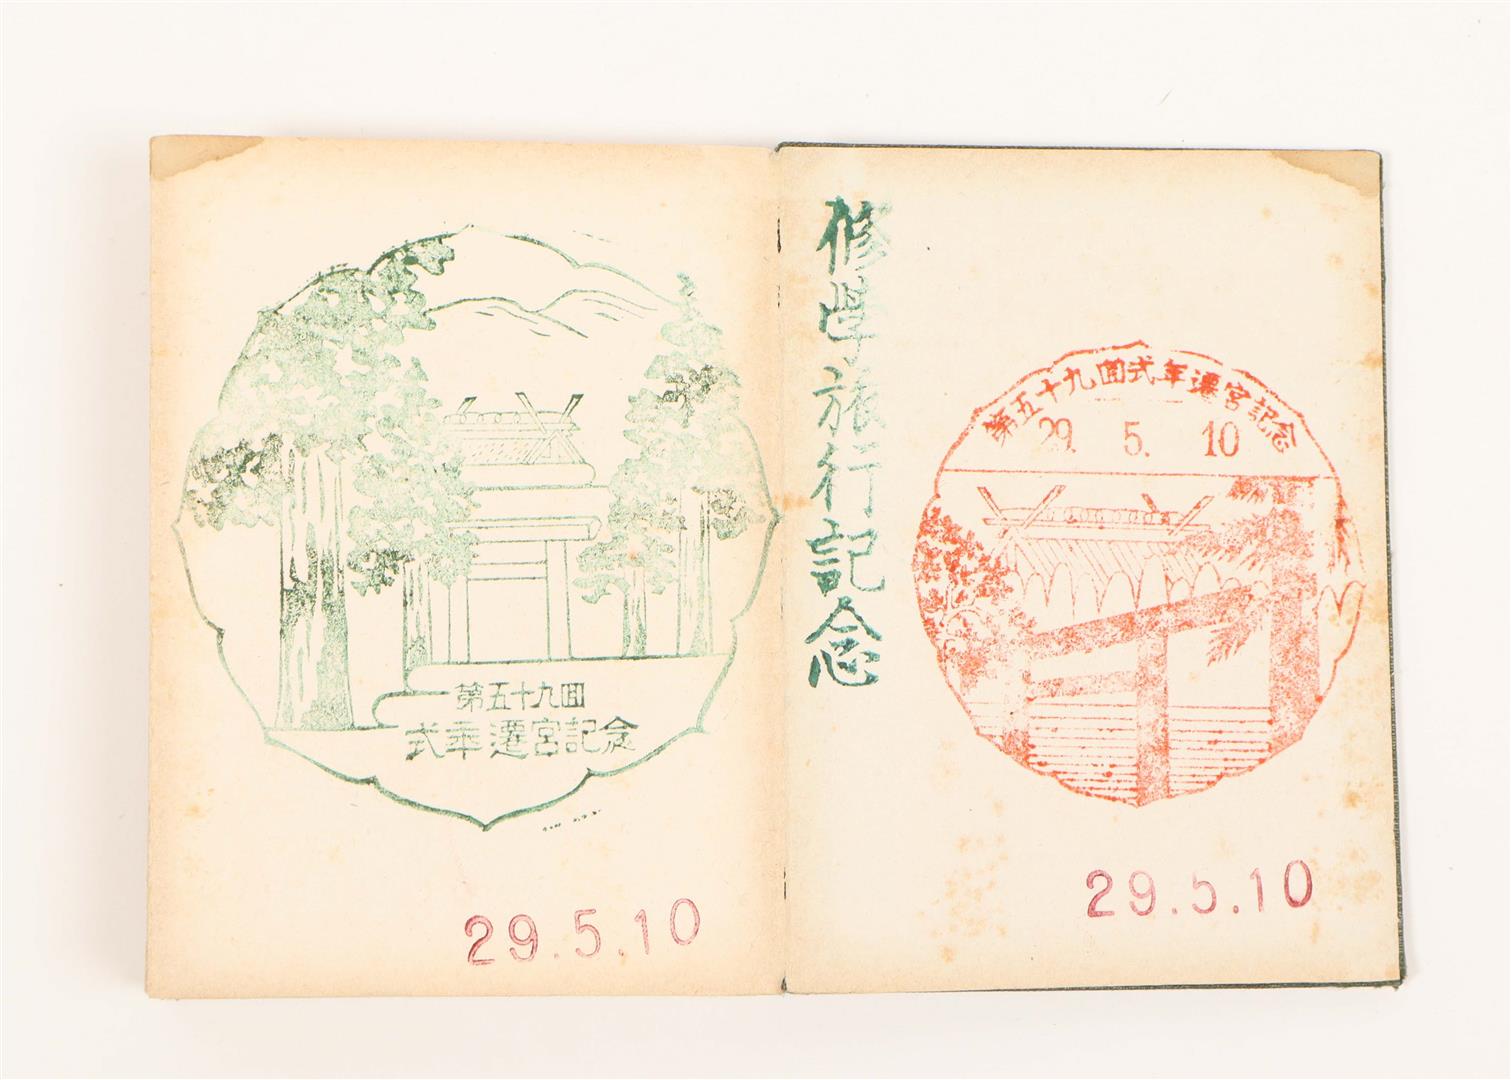 第五十九囬
式年遷宮記念
29.5.10
修学旅行記念
第五十九囬式年遷宮記念
29. 5. 10
29.5.10